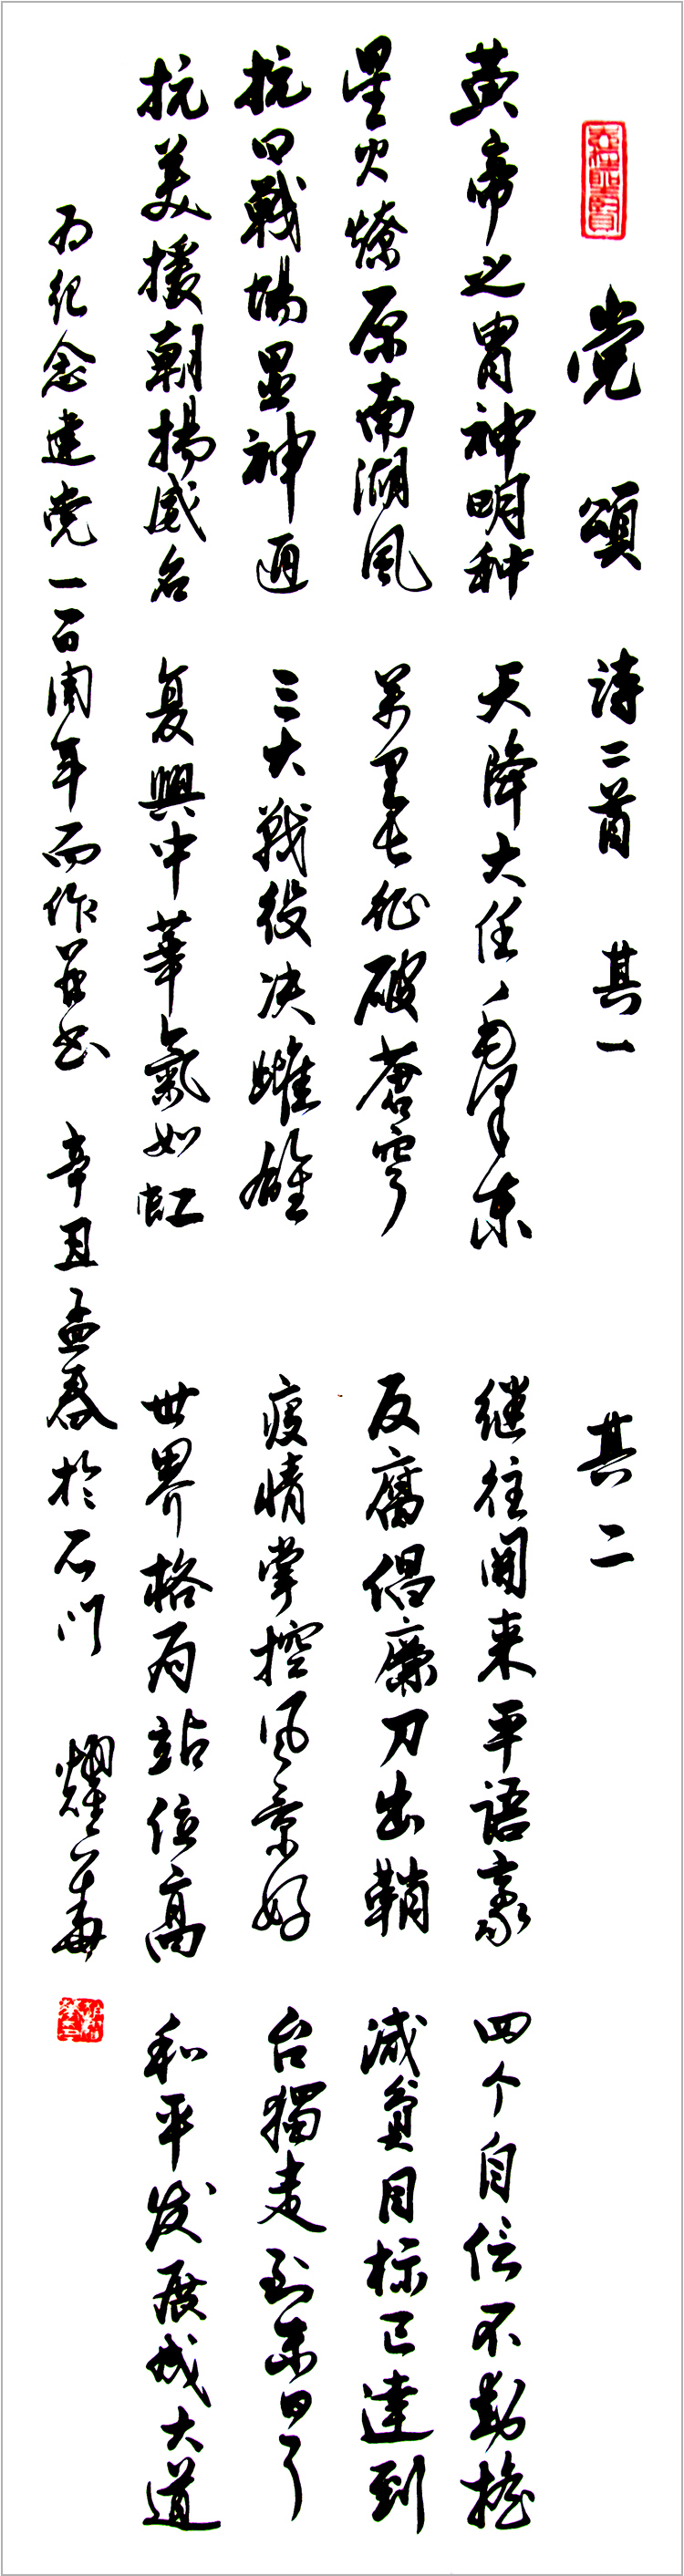 党頌 诗二首 其一 其二
黄帝之胄神明种 天降大任毛泽东 继往開来平语豪 四个自信不動摇
星火燎原南湖風 萬里长征破蒼穹 反腐倡廉刀出鞘 减貧目标已達到
抗日戰場显神通 三大战役决雌雄 疫情掌控风景好 台獨走到末日了
抗美援朝揚威名 复興中華氣如虹 世界格局站位高 和平发展成大道
为纪念建党一百周年而作并书 辛丑孟春於石门 耀